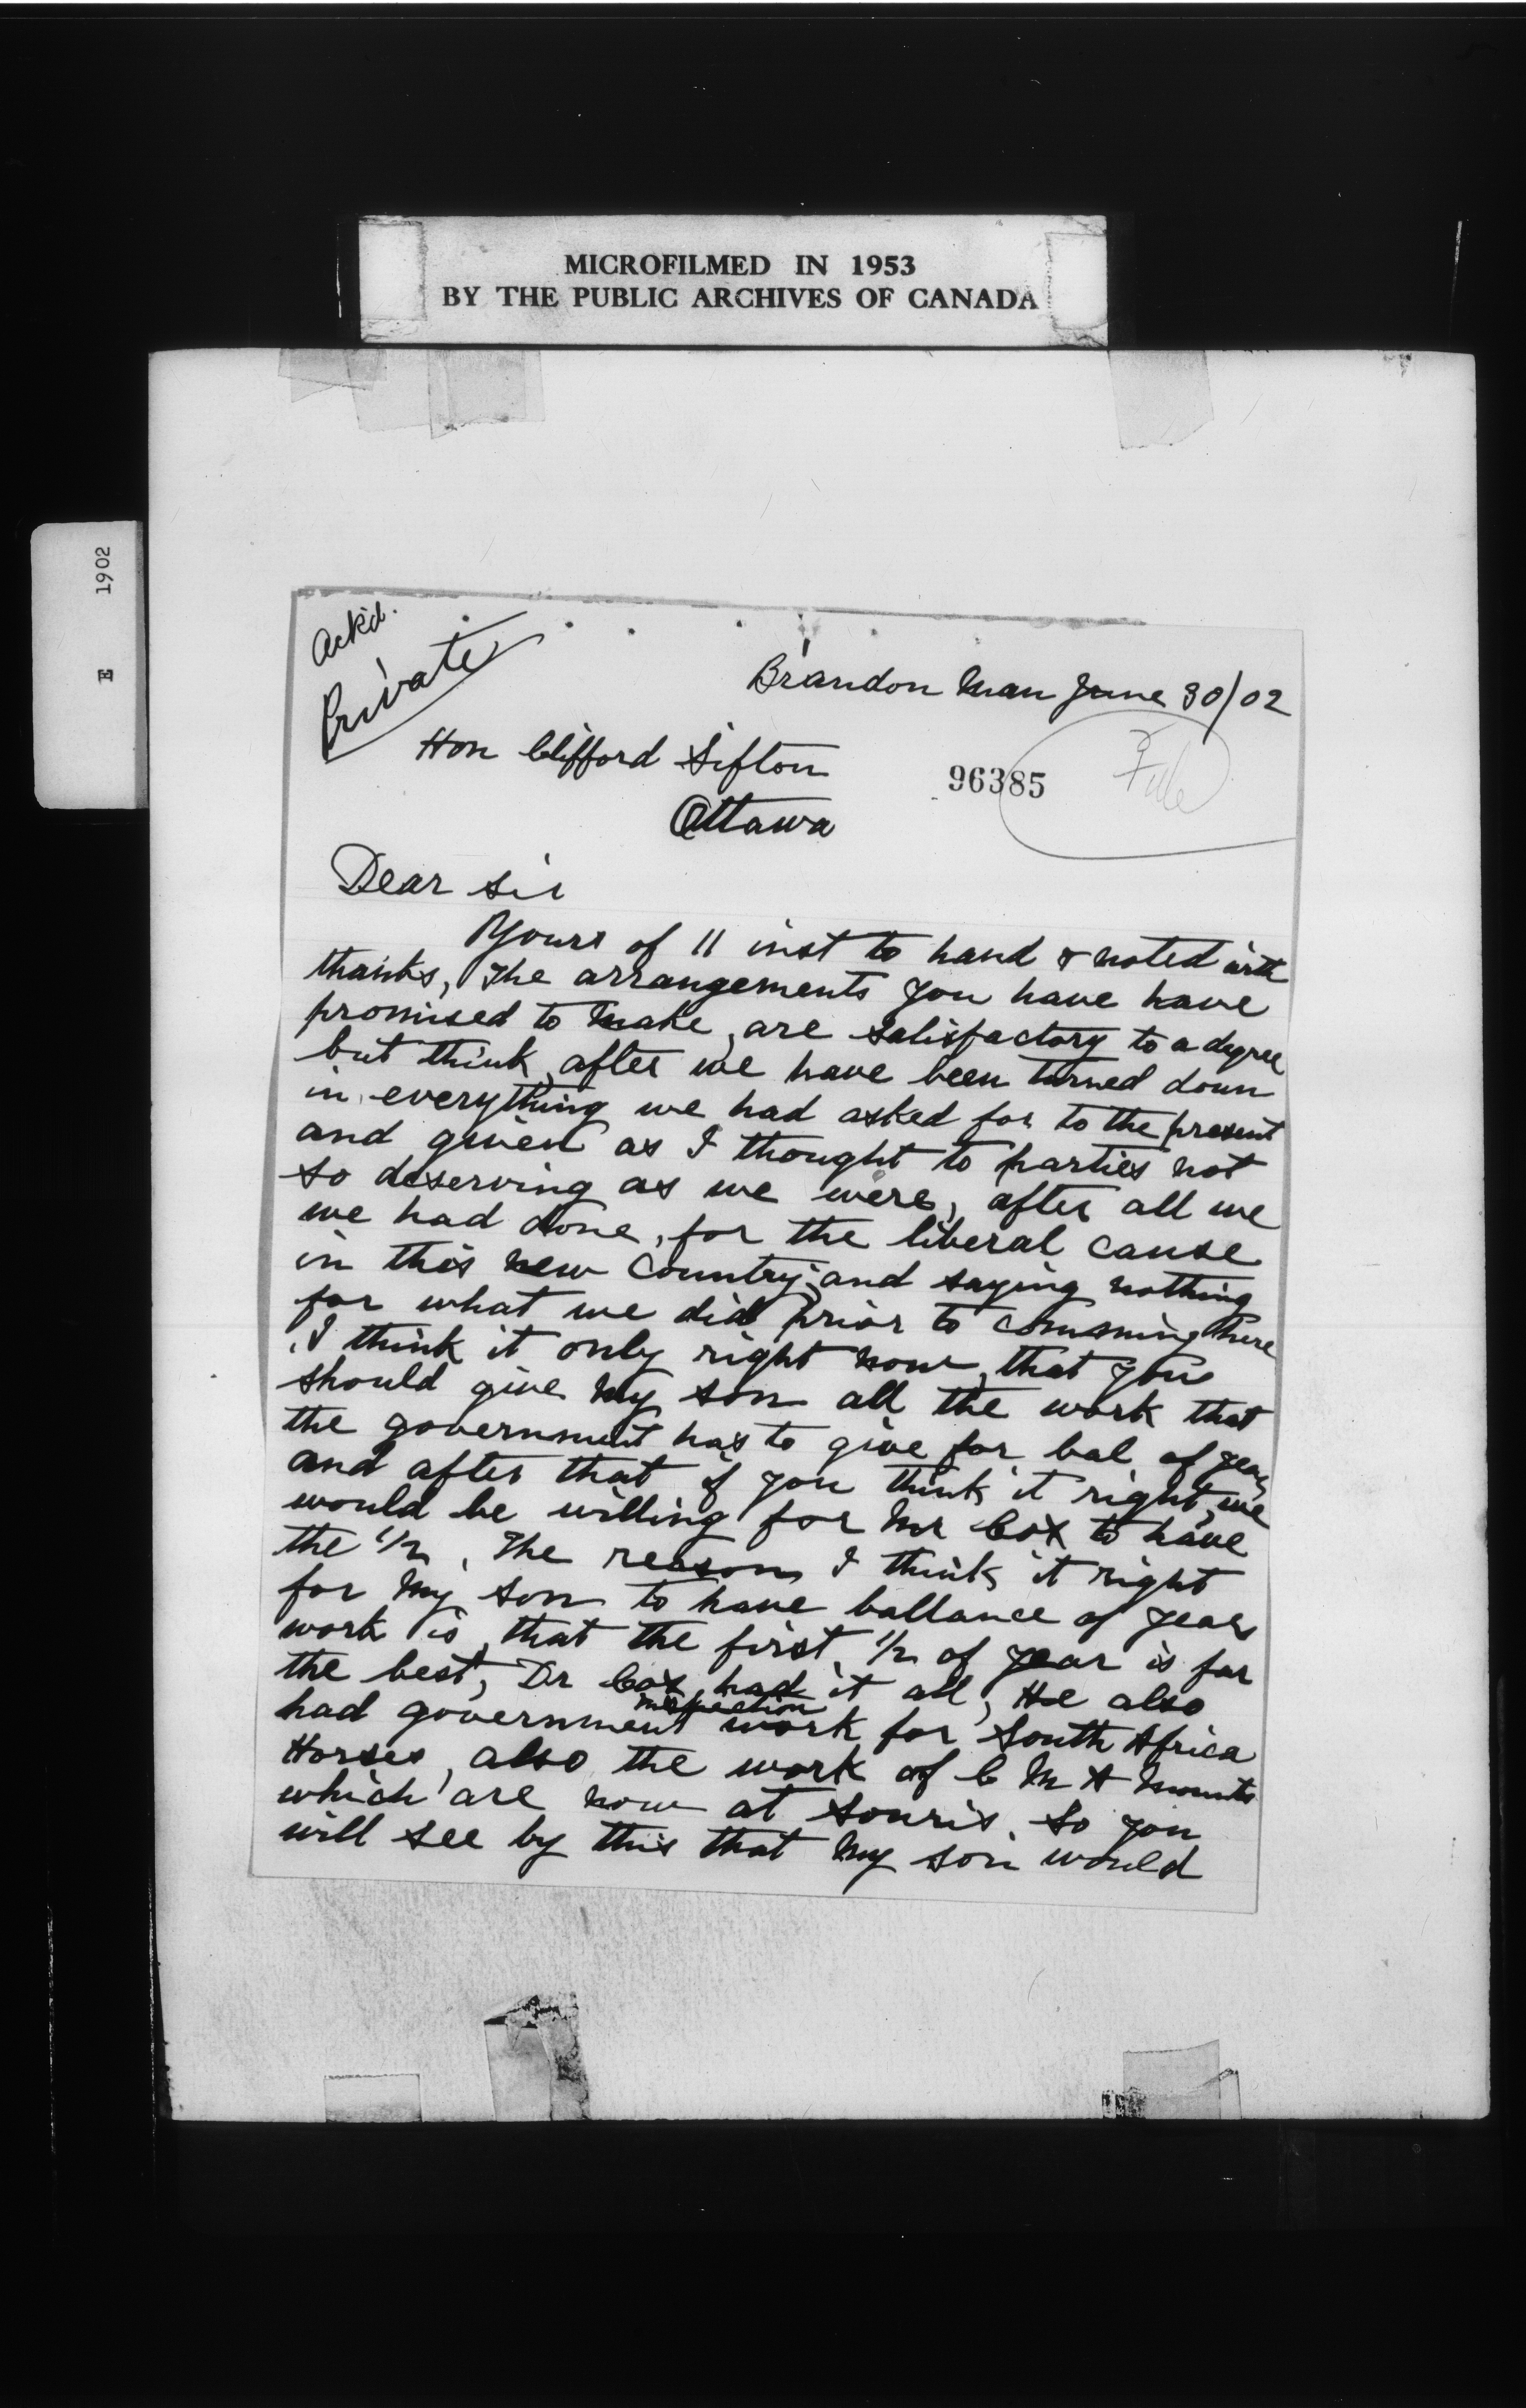 MICROFILMED IN 1953
BY THE PUBLIC ARCHIVES OF CANADA
1902
E
Ackd.
Private
Brandon Man June 30/02
Hon Clifford Sifton
96385
File
Ottawa
Dear Sir
Yours of 11 inst to hand & noted with
thanks, The arrangements you have have
promised to make, are satisfactory to a degree
but think, after we have been turned down
in everything we had asked for to the present
and given as I thought to parties not
so deserving as we were, after all we
we had done, for the liberal cause
in this new Country, and saying nothing
for what we did prior to comming here
, I think it only right now, that you
should give my son all the work that
the government has to give for bal of year
and after that if you think it right, we
would be willing for Mr Cox to have
the 1/2, The reason I think it right
for my son to have ballance of years
work is, that the first, 1/2 of year is far
the best, Dr Cox, had it all, He also
had government inspection work for South Africa
Horses, also the work of C M A mounts
which are now at Souris. So you
will see by this that my son would